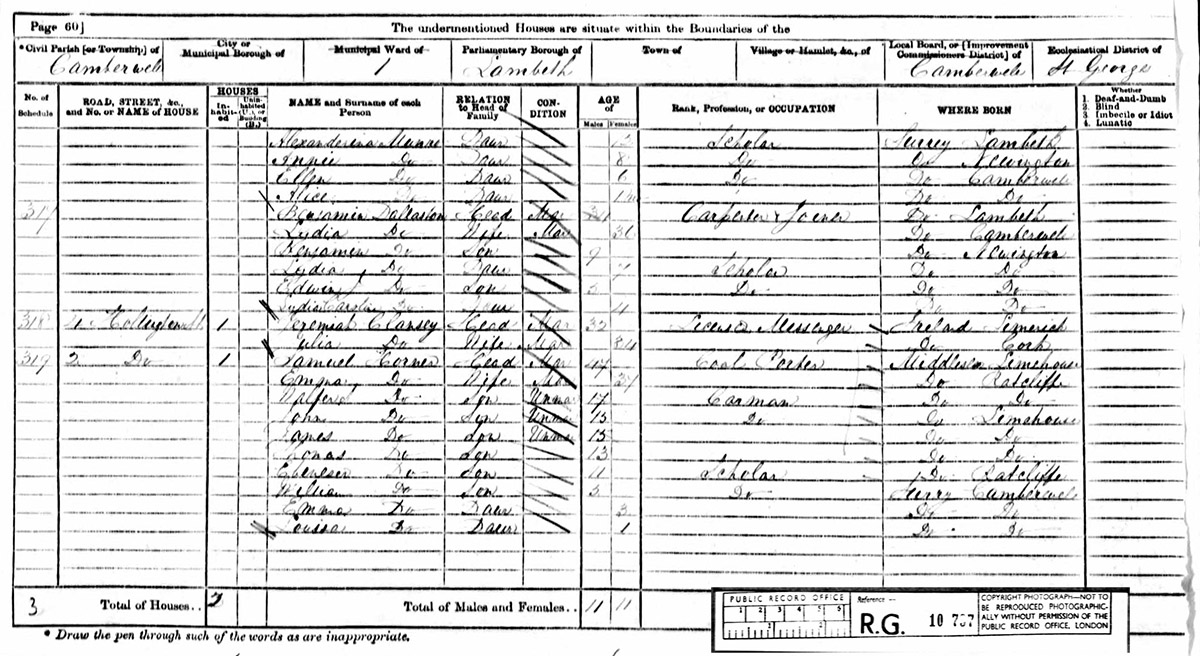 Page 60]
The undermentioned Houses are situate within the Boundaries of the
*Civil Parish [or Township] of City or Municipal Borough of Municipal Ward of Parliamentary Borough of Town of Village or Hamlet, &c., of Local Board, or [Improvement Commissioners District] of Ecclesiastical District of
Camberwell 1 Lambeth Camberwell St George
No. of Schedule ROAD, STREET, &c., and No. or NAME of HOUSE HOUSES Inhabited Uninhabited (U.), or Building (B.) NAME and Surname of each Person RELATION to Head of Family CONDITION AGE of Males Females Rank, Profession, or OCCUPATION WHERE BORN Whether 1. Deaf-and-Dumb 2. Blind 3. Imbecile or Idiot 4. Lunatic
Alexanderina Munro Daur Scholar Surrey Lambeth
Annie Do Daur 8 Do Do Newington
Ellen Do Daur 6 Do Do Camberwell
Alice Do Daur Do Do
317 Benjamin Dallaston Head Mar Carpenter & Joiner Do Lambeth
Lydia Do Wife Mar 30 Do Camberwell
Benjamin Do Son 9 Do Newington
Lydia Do Daur 7 Scholar Do Do
Edwin Do Son 5 Do Do Do
Lydia Caroline Do Daur 4 Do Do
318 1 Jeremiah Clansey Head Mar 32 Messenger Ireland Limerick
Julia Do Wife Mar 34 Do Cork
319 2 Do 1 Samuel Horner Head Mar 47 Coal Porter Middlesex Limehouse
Emma Do Wife Mar Do Ratcliffe
Do Son Unmar 17 Carman Do Do
John Do Son Unmar 15 Do Do Limehouse
James Do Son Unmar 15 Do Do
Do Son 13 Do Do
Ebenezer Do Son 11 Scholar Do Ratcliffe
William Do Son 5 Do Surry Camberwell
Emma Do Daur 3 Do Do
Louisa Do Daur 1 Do Do
3 Total of Houses.. 2 Total of Males and Females.. 11 11
* Draw the pen through such of the words as are inappropriate.
PUBLIC RECORD OFFICE
1 2 3 4 5 6
1 2
Reference :-
R.G. 10 737
COPYRIGHT PHOTOGRAPH—NOT TO
BE REPRODUCED PHOTOGRAPHIC-
ALLY WITHOUT PERMISSION OF THE
PUBLIC RECORD OFFICE, LONDON